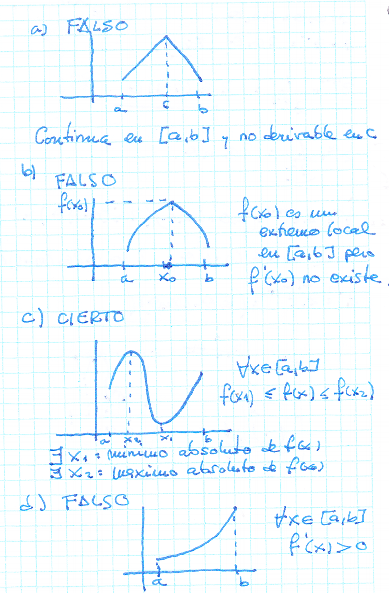 a) FALSO
a c b
Continua en [a,b] y no derivable en c
b) FALSO
f(x₀)
a x₀ b
f(x₀) es un
extremo local
en [a,b] pero
f'(x₀) no existe.
c) CIERTO
∀x∈[a,b]
f(x₁) ≤ f(x) ≤ f(x₂)
a x₂ x₁ b
∃ x₁ = mínimo absoluto de f(x)
∃ x₂ = máximo absoluto de f(x)
d) FALSO
∀x∈[a,b]
f'(x) > 0
a b